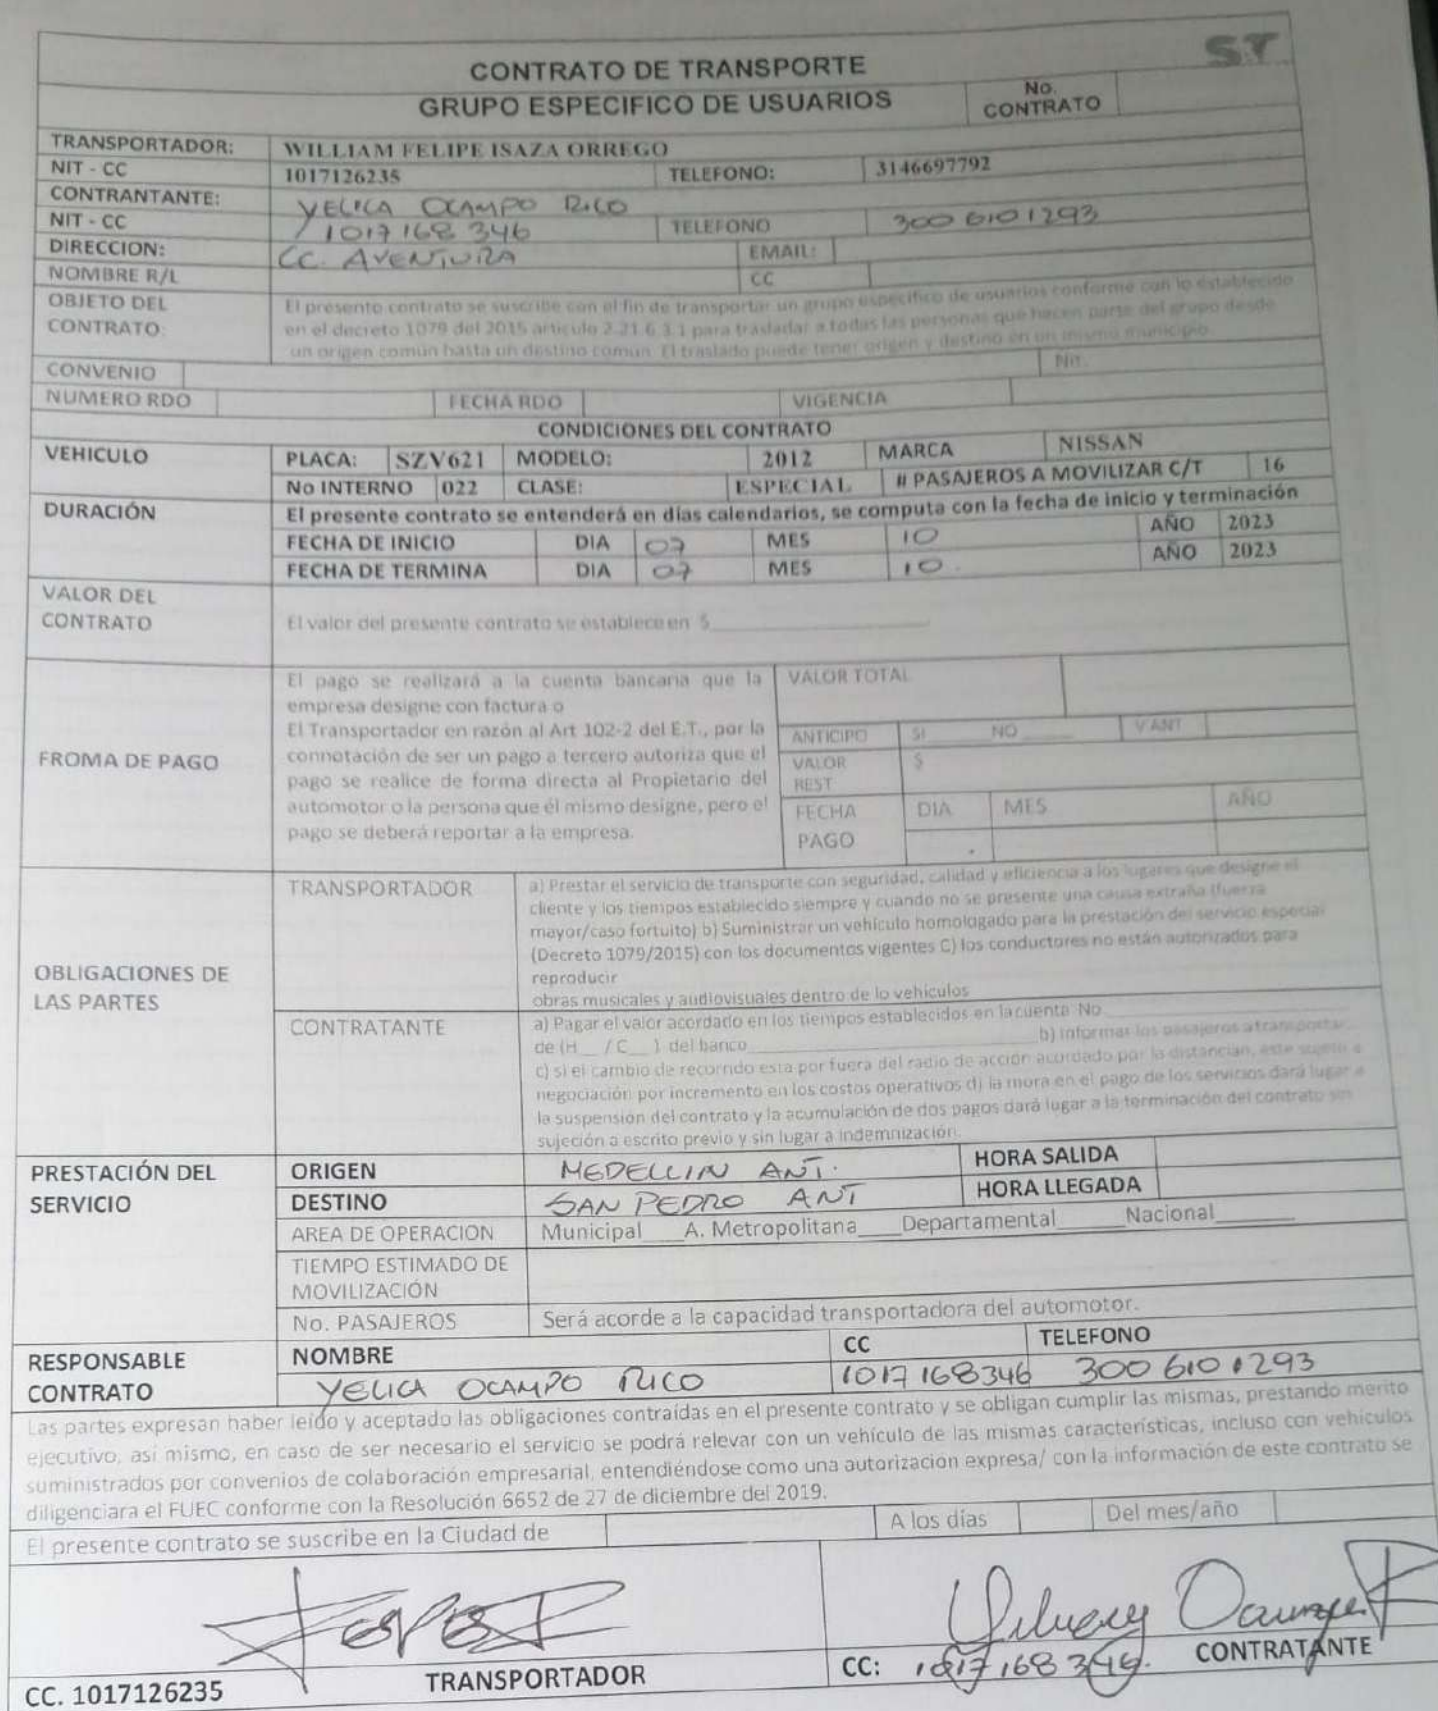 ST
CONTRATO DE TRANSPORTE
GRUPO ESPECIFICO DE USUARIOS
No. CONTRATO
TRANSPORTADOR: WILLIAM FELIPE ISAZA ORREGO
NIT - CC 1017126235 TELEFONO: 3146697792
CONTRANTANTE: YELICA OCAMPO RICO
NIT - CC 1017168346 TELEFONO 300 6101293
DIRECCION: CC. AVENTURA EMAIL:
NOMBRE R/L CC
OBJETO DEL CONTRATO: El presento contrato se suscribe con el fin de transportar un grupo especifico de usuarios conforme con lo establecido
en el decreto 1079 del 2015 articulo 2.21.6.3.1 para trasladar a todas las personas que hacen parte del grupo desde
un origen común hasta un destino común. El traslado puede tener origen y destino en un mismo municipio.
CONVENIO Nit.
NUMERO RDO FECHA RDO VIGENCIA
CONDICIONES DEL CONTRATO
VEHICULO PLACA: SZV621 MODELO: 2012 MARCA NISSAN
No INTERNO 022 CLASE: ESPECIAL # PASAJEROS A MOVILIZAR C/T 16
DURACIÓN El presente contrato se entenderá en días calendarios, se computa con la fecha de inicio y terminación
FECHA DE INICIO DIA 07 MES 10 AÑO 2023
FECHA DE TERMINA DIA 07 MES 10. AÑO 2023
VALOR DEL CONTRATO El valor del presente contrato se establece en $
FROMA DE PAGO
El pago se realizará a la cuenta bancaria que la
empresa designe con factura o
El Transportador en razón al Art 102-2 del E.T., por la
connotación de ser un pago a tercero autoriza que el
pago se realice de forma directa al Propietario del
automotor o la persona que él mismo designe, pero el
pago se deberá reportar a la empresa.
VALOR TOTAL
ANTICIPO SI NO V ANT
VALOR REST $
FECHA PAGO DIA MES AÑO
OBLIGACIONES DE LAS PARTES
TRANSPORTADOR a) Prestar el servicio de transporte con seguridad, calidad y eficiencia a los lugares que designe el
cliente y los tiempos establecido siempre y cuando no se presente una causa extraña (fuerza
mayor/caso fortuito) b) Suministrar un vehículo homologado para la prestación del servicio especial
(Decreto 1079/2015) con los documentos vigentes C) los conductores no están autorizados para
reproducir
obras musicales y audiovisuales dentro de lo vehículos
CONTRATANTE a) Pagar el valor acordado en los tiempos establecidos en la cuenta No
de (H__ / C__ ) del banco b) Informar los pasajeros a transportar
c) si el cambio de recorrido esta por fuera del radio de acción acordado por la distancian, este sujeto a
negociación por incremento en los costos operativos d) la mora en el pago de los servicios dará lugar a
la suspensión del contrato y la acumulación de dos pagos dará lugar a la terminación del contrato sin
sujeción a escrito previo y sin lugar a indemnización.
PRESTACIÓN DEL SERVICIO
ORIGEN MEDELLIN ANT. HORA SALIDA
DESTINO SAN PEDRO ANT HORA LLEGADA
AREA DE OPERACION Municipal____A. Metropolitana____Departamental______Nacional_______
TIEMPO ESTIMADO DE
MOVILIZACIÓN
No. PASAJEROS Será acorde a la capacidad transportadora del automotor.
RESPONSABLE CONTRATO NOMBRE CC TELEFONO
YELICA OCAMPO RICO 1017168346 300 6101293
Las partes expresan haber leído y aceptado las obligaciones contraídas en el presente contrato y se obligan cumplir las mismas, prestando merito
ejecutivo, así mismo, en caso de ser necesario el servicio se podrá relevar con un vehículo de las mismas características, incluso con vehículos
suministrados por convenios de colaboración empresarial, entendiéndose como una autorización expresa/ con la información de este contrato se
diligenciara el FUEC conforme con la Resolución 6652 de 27 de diciembre del 2019.
El presente contrato se suscribe en la Ciudad de A los días Del mes/año
CC. 1017126235 TRANSPORTADOR CC: 1017168346. CONTRATANTE